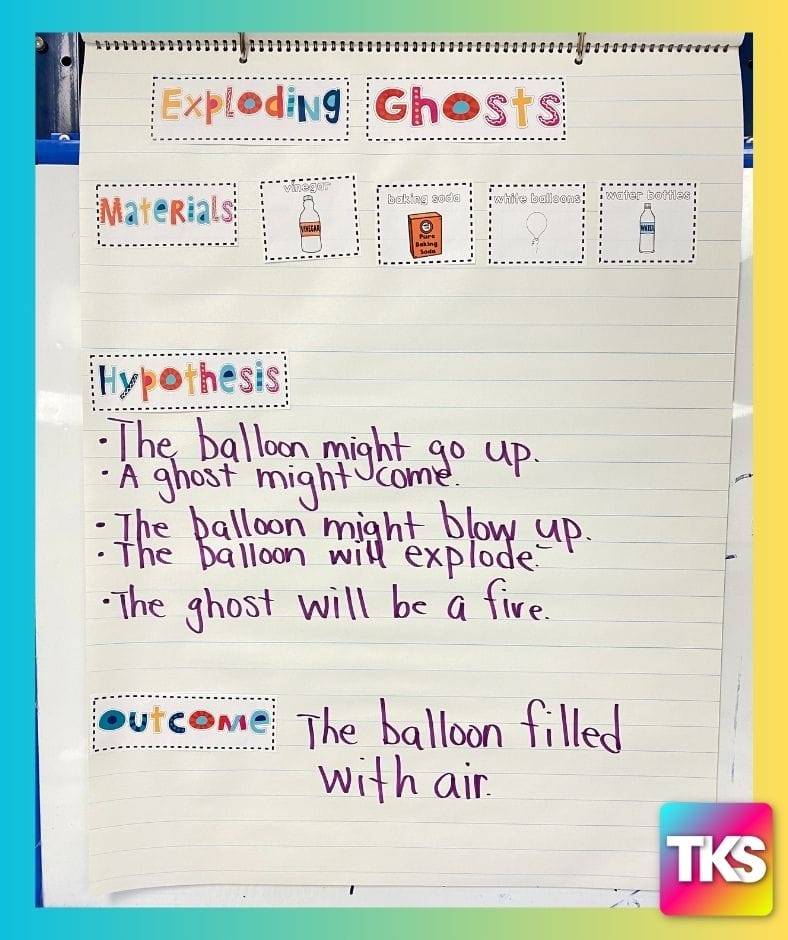 Exploding Ghosts
Materials
vinegar
VINEGAR
baking soda
Pure
Baking
Soda
white balloons
water bottles
WATER
Hypothesis
• The balloon might go up.
• A ghost might come.
• The balloon might blow up.
• The balloon will explode.
• The ghost will be a fire.
Outcome The balloon filled
with air.
TKS